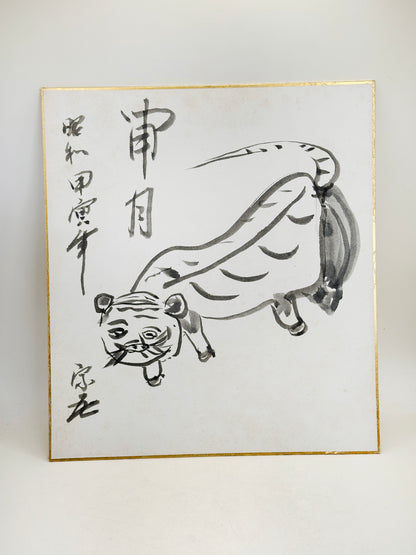 嘯月
昭和甲寅年
宗